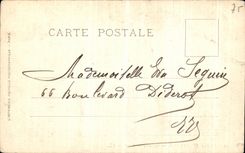 CARTE POSTALE
Mademoiselle Eva Seguin
66 boulevard Diderot
EV